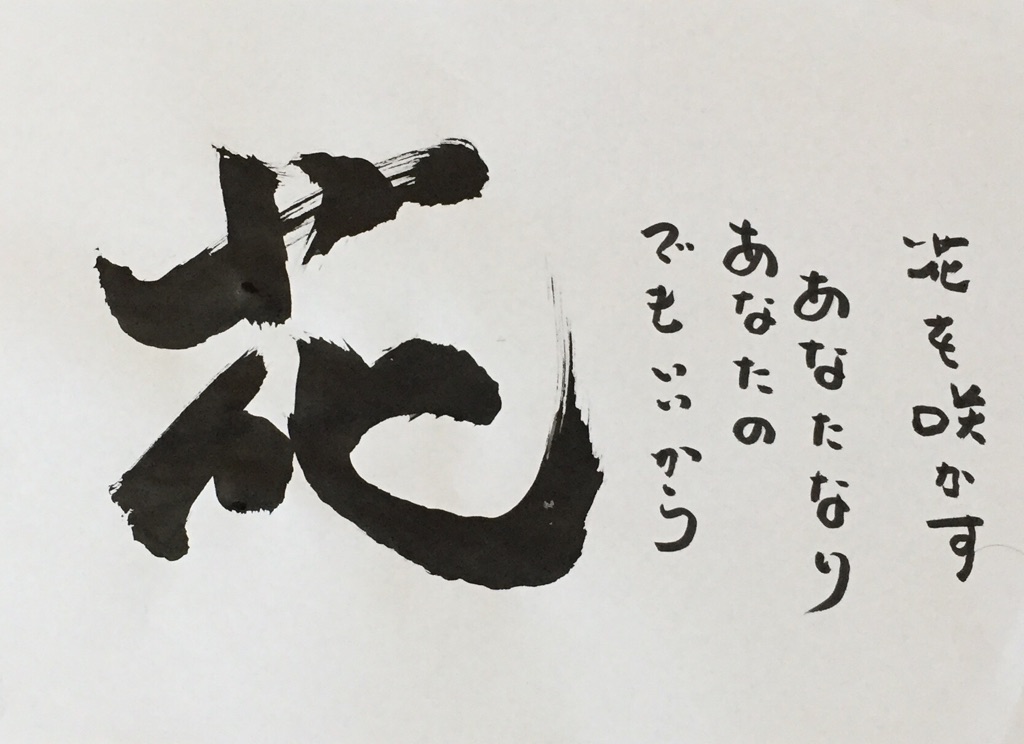 花を咲かす
あなたなり
あなたの
でもいいから
花